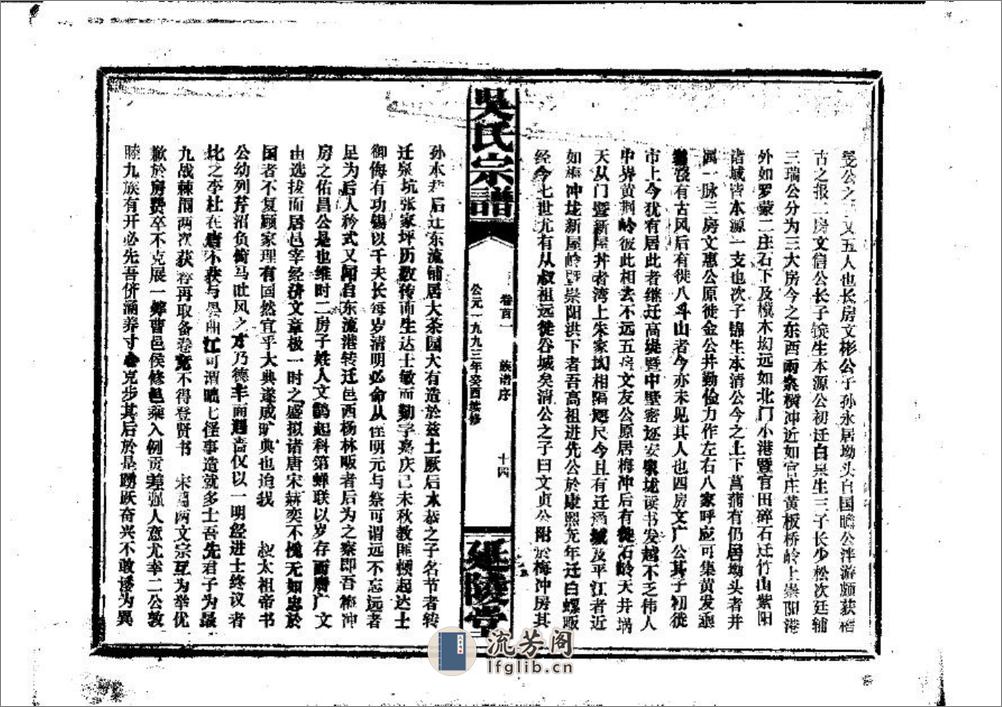 旻公之子又五人也长房文彬公子孙永居坳头自国瞻公泮游颇获稽
古之报二房文信公长子锭生本源公初迁白泉生三子长少松次廷辅
三瑞公分为三大房今之东西两泉横冲近如官庄黄板桥岭上崇阳港
外如罗蒙二庄石下及横木坳远如北门小港暨官田碎石迁竹山紫阳
诸城皆本源一支也次子锦生本清公今之上下菖蒲有仍居坳头者并
属一脉三房文惠公原徙金公井勤俭力作左右八家呼应可集黄发
有古风后有徙八斗山者今亦未见其人也四房文广公其子初徙
市上今犹有居此者继迁高堤暨中墅密迩安泉垅读书发越不乏伟人
中界黄荆岭彼此相去不远五房文友公原居梅冲后有徙石岭天井埚
天从门暨新屋井者湾上朱家坳相隔咫尺今且有迁通城及平江者近
如梅冲垅新屋岭暨崇阳洪下者吾高祖进先公於康熙元年迁白螺畈
经今七世尤有从叔祖远徙谷城矣清公之子曰文贞公附於梅冲房其
吴氏宗譜
卷首一
族谱序
十四
公元一九九三年癸酉续修
延陵堂
孙本 后迁东流铺居大茶园大有造於兹土厥后本恭之子名节者转
迁泉坑张家坪历数传而生达士敏而勤学嘉庆己未秋教匪顿起达士
御侮有功锡以千夫长每岁清明必命从侄明元与祭可谓远不忘远者
足为后人矜式又闻自东流港转迁邑西杨林畈者后为之察即吾梅冲
房之佑昌公是也维时二房子姓人文鹊起科第蝉联以岁存而膺广文
由选拔而居邑宰经济文章极一时之盛拟诸唐宋赫奕不愧无如忠於
国者不复顾家理有固然宜乎大典遂成旷典也迨我 叔太祖帝书
公幼列芹沼负倚马吐风之才乃德丰而遇啬仅以一明经进士终议者
比之李杜在唐不获与曲江可谓 七怪事造就多士吾先君子为最
九战棘闱两次获荐再取备卷竟不得登贤书 宋葛两文宗互为举优
歉於房费卒不克展一 曹邑侯修邑乘入例贡差强人意尤幸二公敦
睦九族有开必先吾侪涵养寸 克步其后於是踴跃奋兴不敢诿为异
流芳阁
lfglib.cn